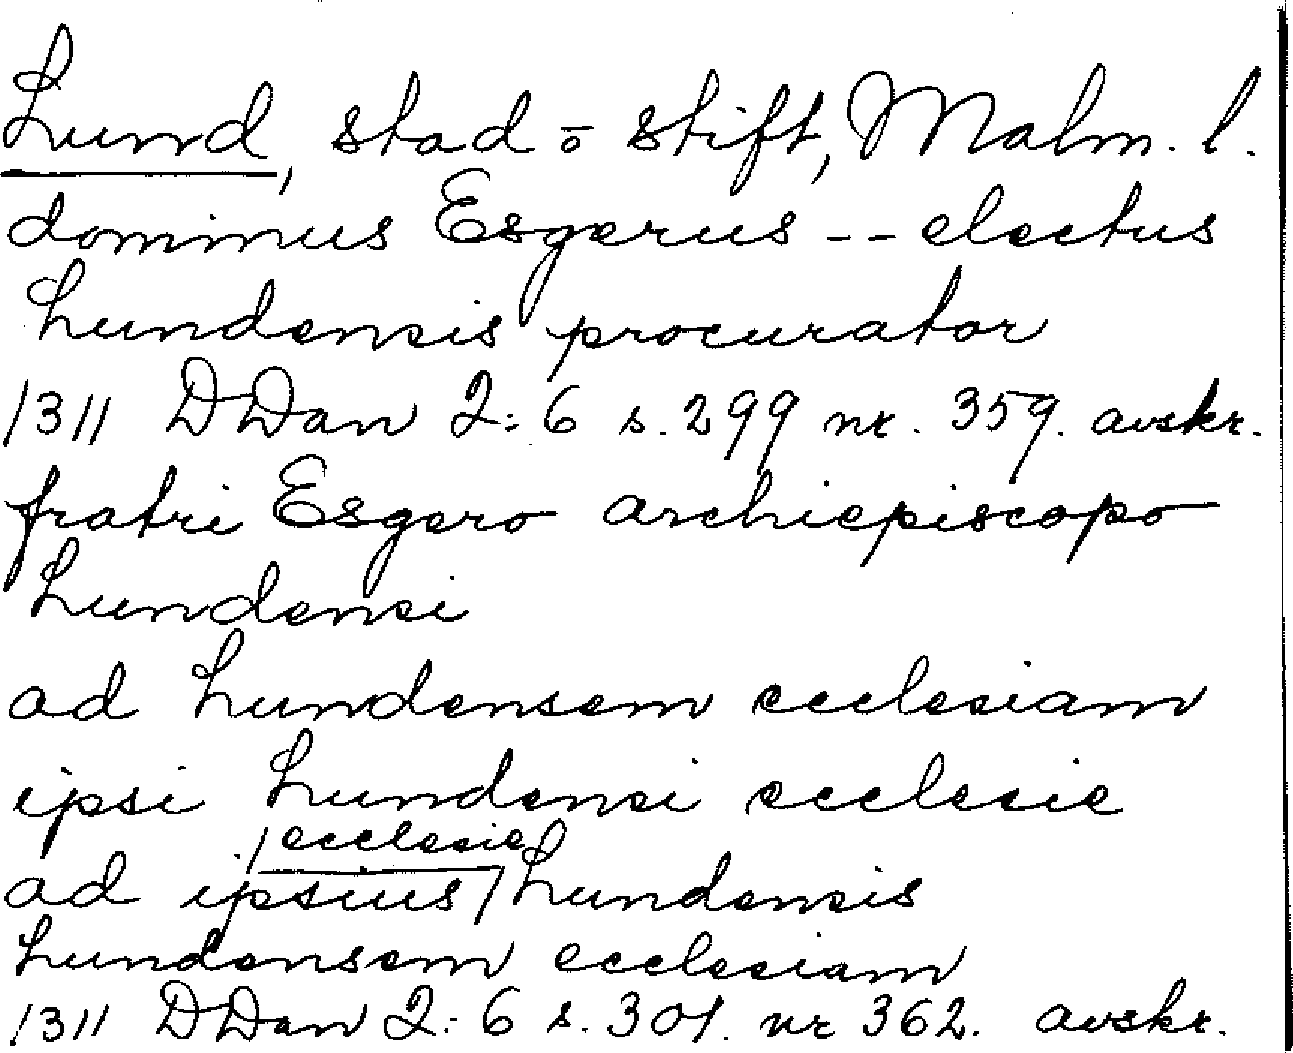 Lund, stad o stift, Malm. l.
dominus Esgerus -- electus
Lundensis procurator
1311 DDan 2:6 s. 299 nr. 359. avskr.
fratri Esgero archiepiscopo
Lundensi
ad Lundensem ecclesiam
ipsi Lundensi ecclesie
ecclesie
ad ipsius Lundensis
Lundensem ecclesiam
1311 DDan 2:6 s. 301. nr 362. avskr.